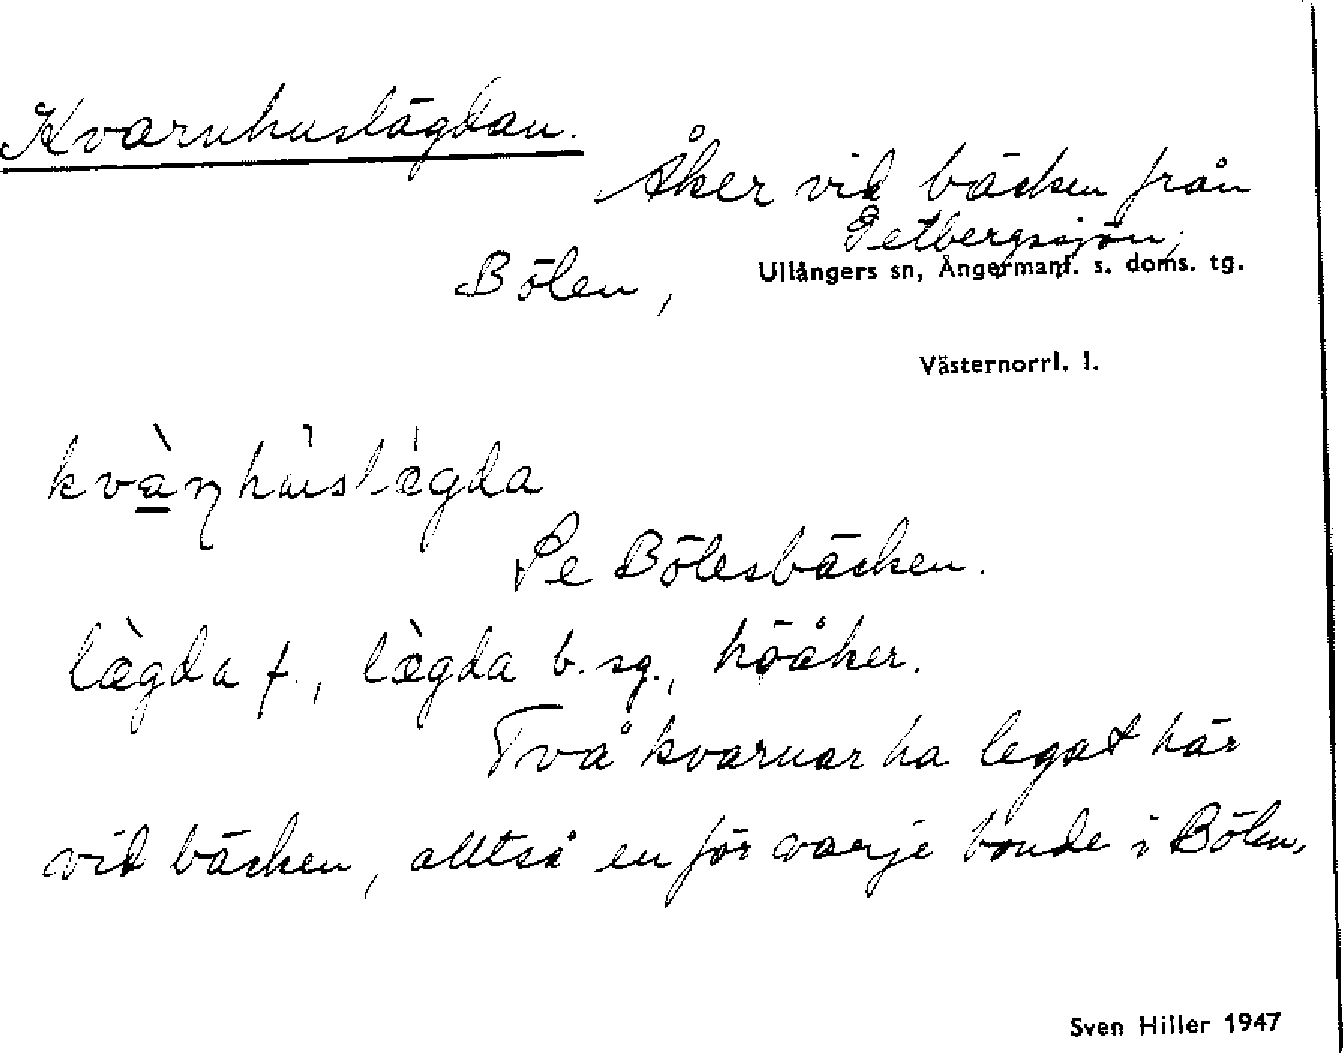 Kvarnhuslägdan.
Åker vid bäcken från
Getbergssjön,
Bölen, Ullångers sn, Ångermanl. s. doms. tg.
Västernorrl. l.
kvàn̥hùslægda
Se Bölesbäcken.
lægda f., lægda b. sg., höåker.
Två kvarnar ha legat här
vid bäcken, alltså en för varje bonde i Bölen.
Sven Hiller 1947